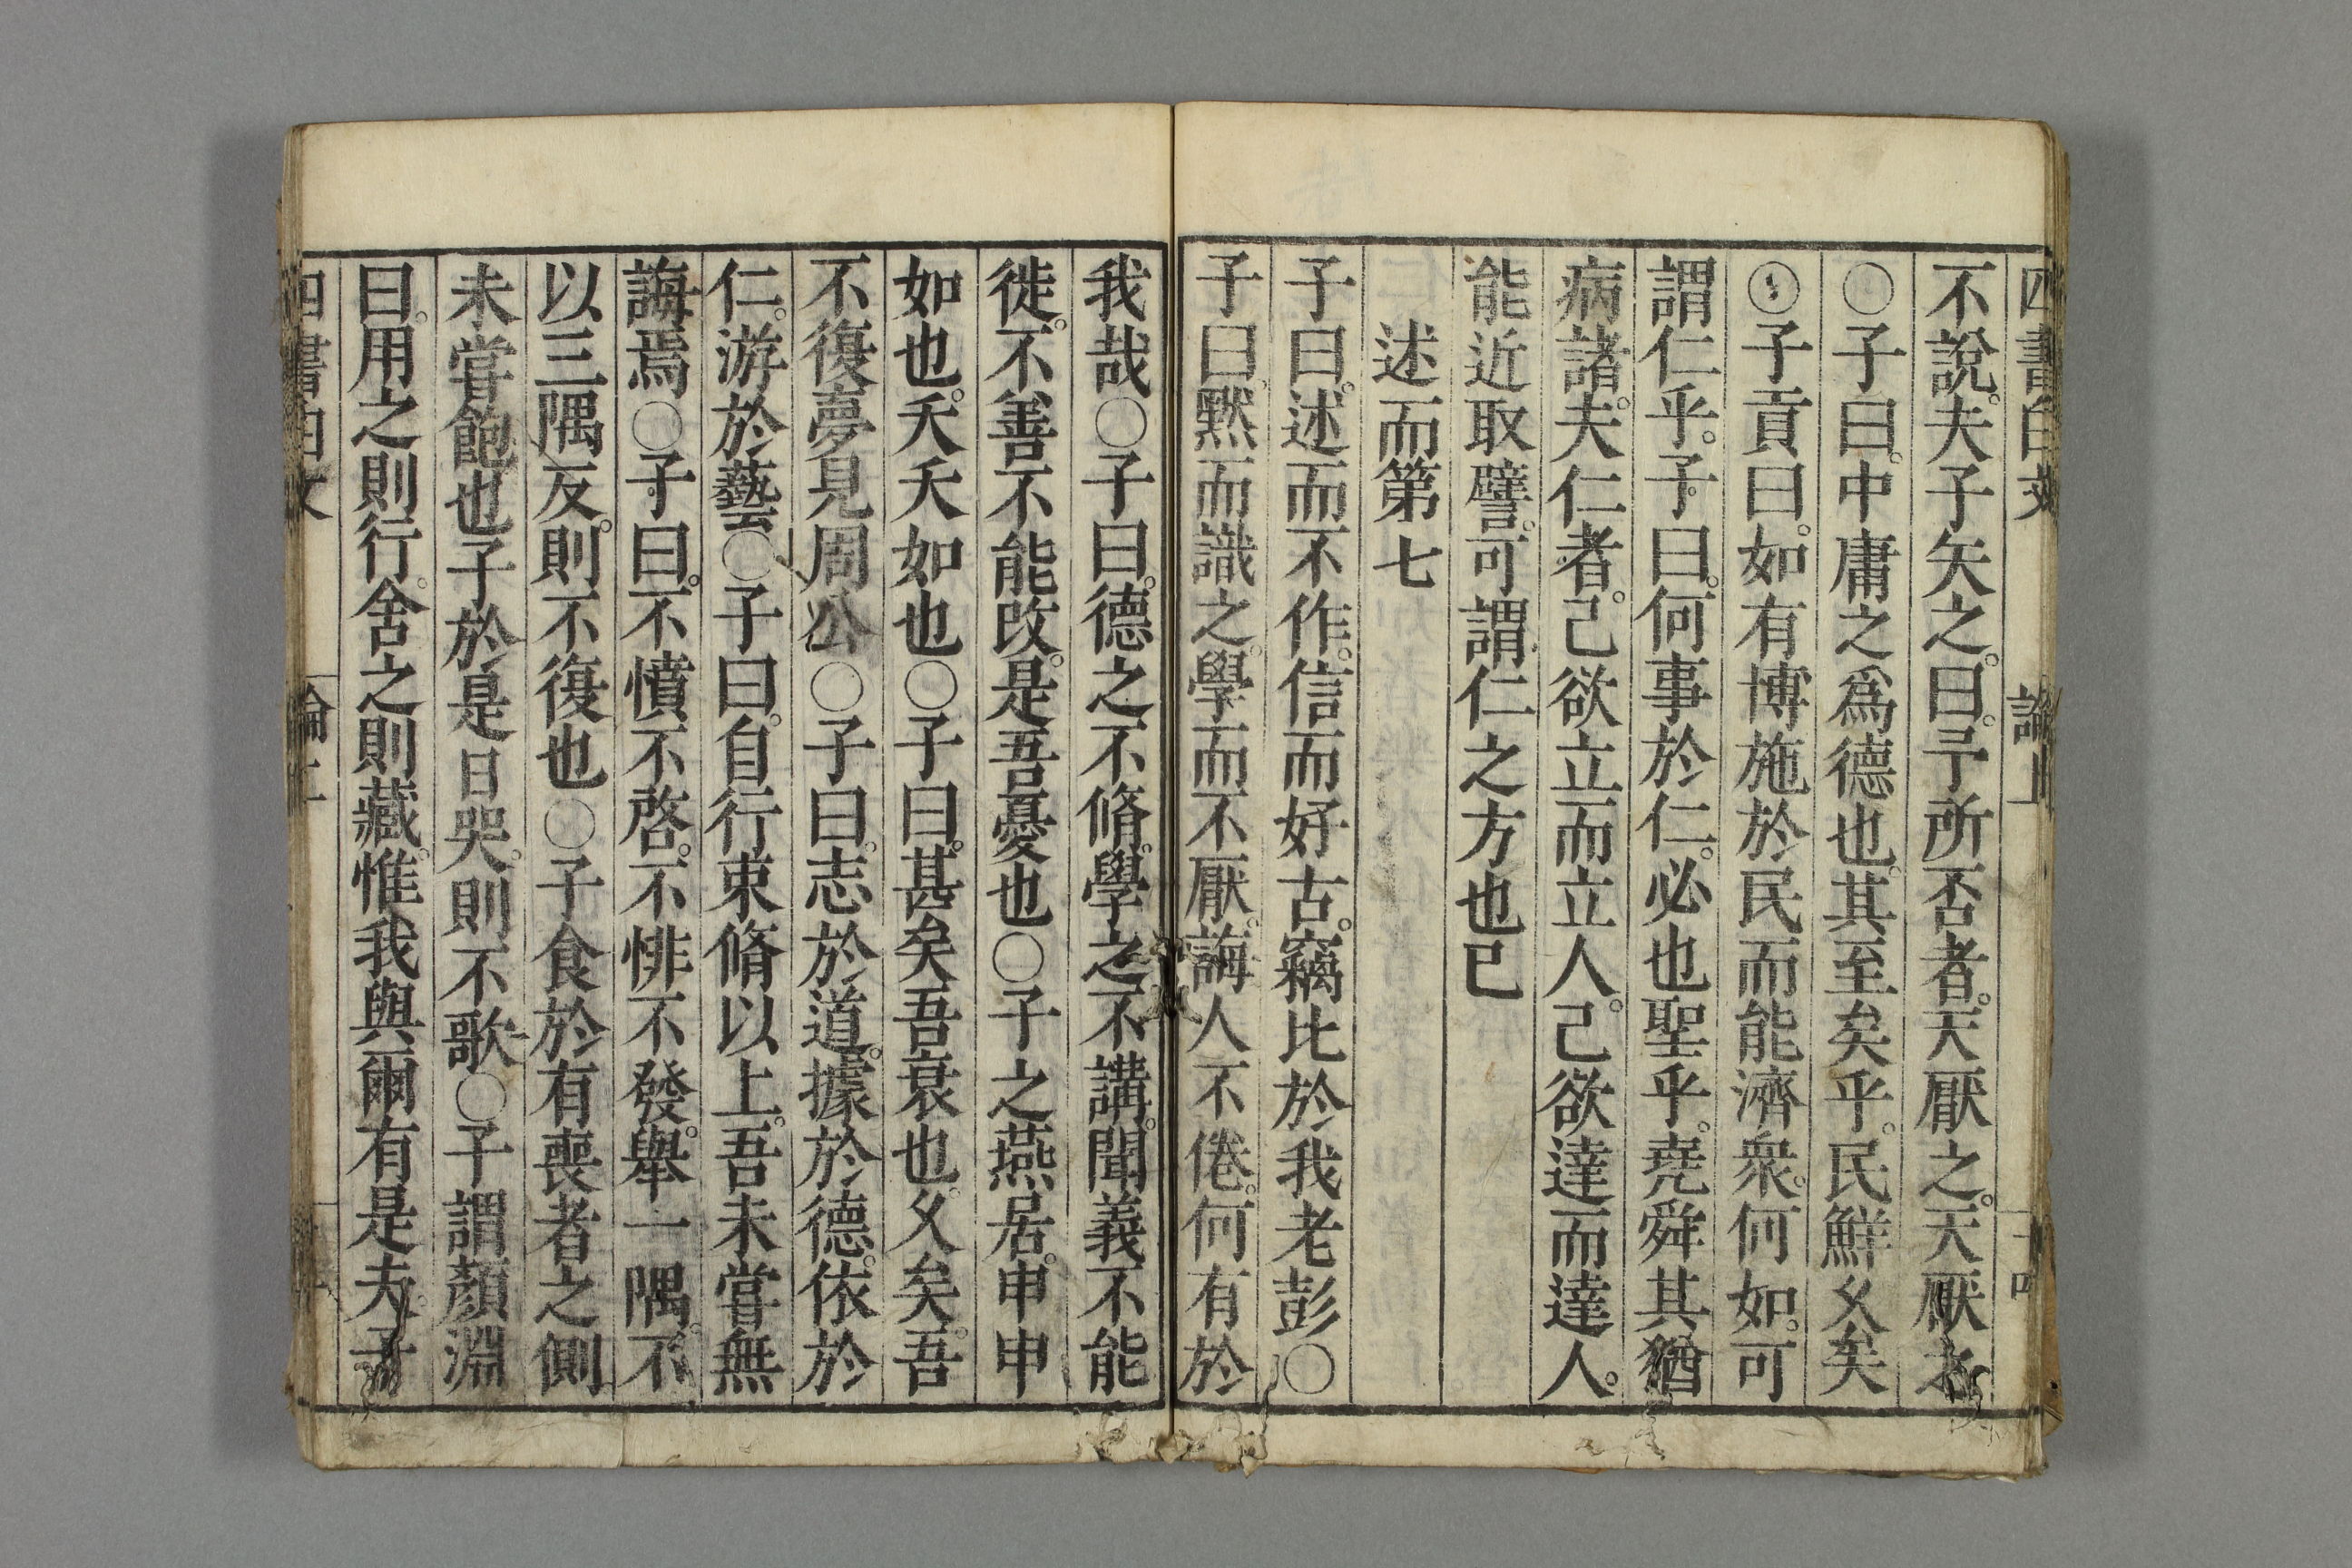 四書白文 論上 十四
不說。夫子矢之。曰。予所否者。天厭之。天厭之
○子曰。中庸之爲德也。其至矣乎。民鮮乆矣
○子貢曰。如有博施於民而能濟衆。何如。可
謂仁乎。子曰。何事於仁。必也聖乎。堯舜其猶
病諸。夫仁者。己欲立而立人。己欲達而達人。
能近取譬。可謂仁之方也已
述而第七
子曰。述而不作。信而好古。竊比於我老彭○
子曰。黙而識之。學而不厭。誨人不倦。何有於
我哉○子曰。德之不脩。學之不講。聞義不能
徙。不善不能改。是吾憂也○子之燕居。申申
如也。夭夭如也○子曰。甚矣吾衰也。乆矣。吾
不復夢見周公○子曰。志於道。據於德。依於
仁。游於藝○子曰。自行束脩以上。吾未嘗無
誨焉○子曰。不憤不啓。不悱不發。舉一隅。不
以三隅反。則不復也○子食於有喪者之側
未嘗飽也子於是日哭。則不歌○子謂顏淵
曰。用之則行。舍之則藏。惟我與爾有是夫。子
四書白文 論上